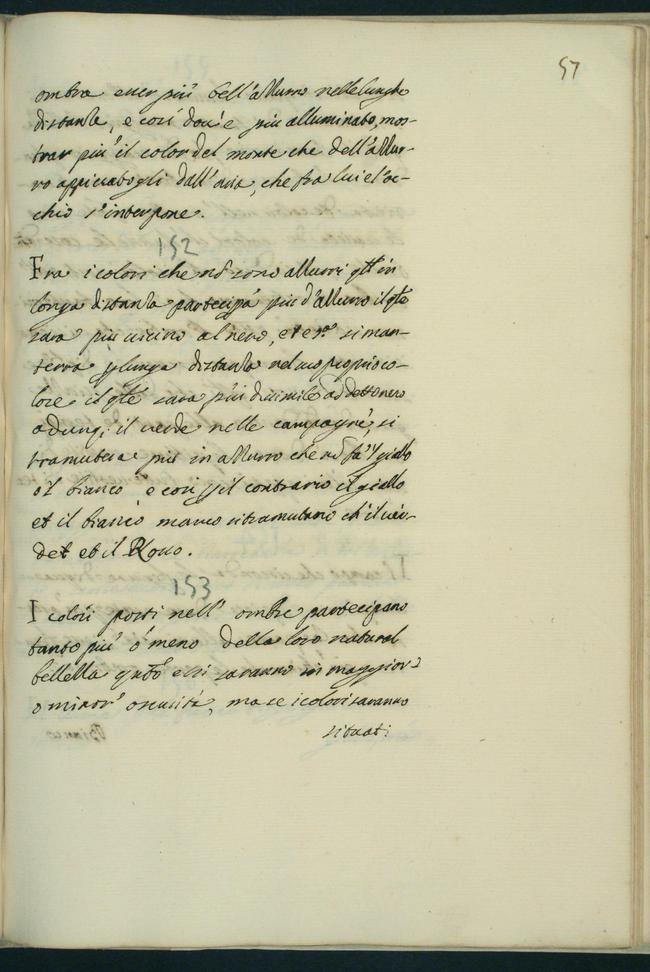 57
ombra esser più bell'azzurro nelle lunghe
distanze, e così dou'è più alluminato, mos-
trar più il color del monte che dell'azzur-
ro appiccatogli dall'aria, che fra lui e l'oc-
chio s'interpone.
152
Fra i colori che nõ sono azzurri q̃llo in
longa distanza partecipa più d'azzurro il q̃le
sara più uicino al nero, et e si man-
terra p lunga distanza nel suo proprio co-
lore il q̃le sara più disimile ad detto nero
adunq; il uerde nelle campagne, si
tramutera più in azzurro che nõ fa'l giallo
o'l bianco, e così p il contrario il giallo
et il bianco manco si tramutano ch'il uer-
de et il Rosso.
153
I colori posti nell'ombre partecipano
tanto più ò meno della loro natural
bellezza qũto essi saranno in maggior
o minor oscurità, ma se i colori saranno
situati